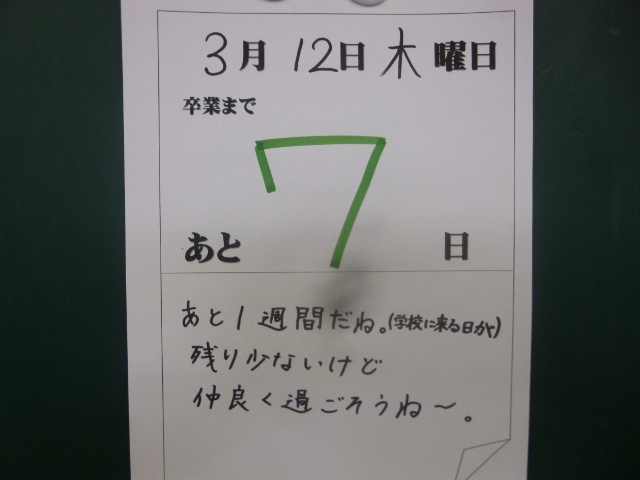 3月12日木曜日
卒業まで
あと7日
あと1週間だね。(学校に来る日がや)
残り少ないけど
仲良く過ごそうね〜。